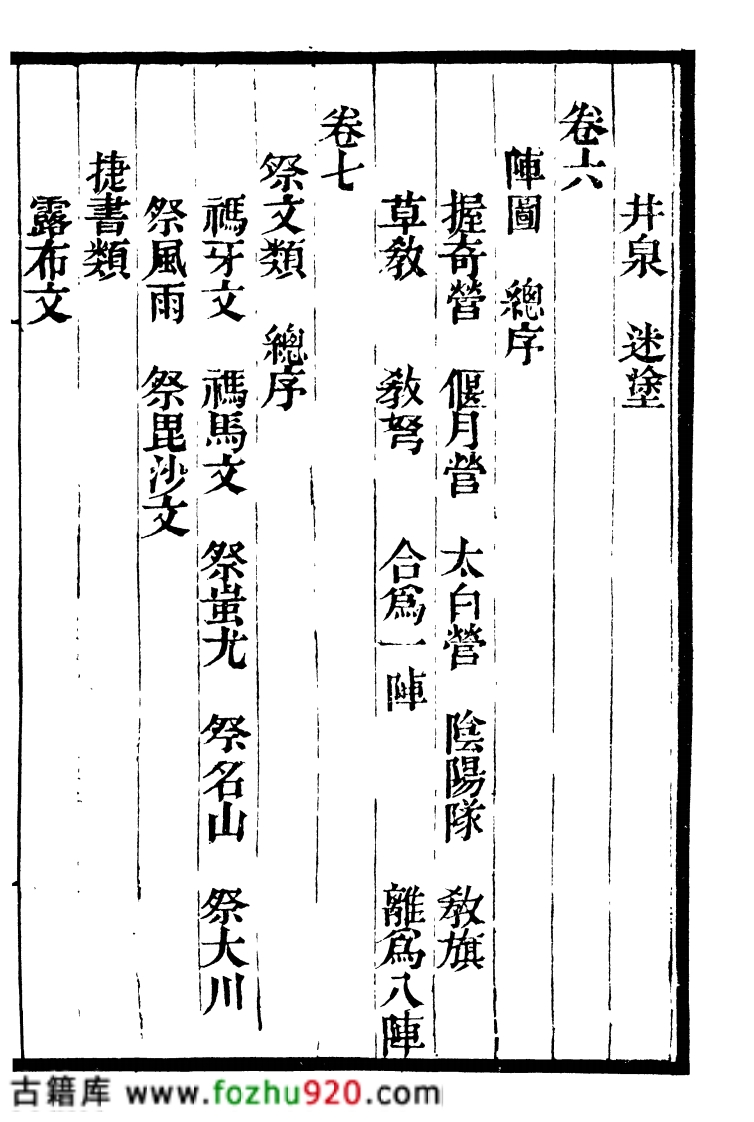 井泉　迷塗
卷六
陣圖　總序
握奇營　偃月營　太白營　陰陽隊　敎旗
草敎　敎弩　合爲一陣　離爲八陣
卷七
祭文類　總序
禡牙文　禡馬文　祭蚩尤　祭名山　祭大川
祭風雨　祭毘沙文
捷書類
露布文
古籍库 www.fozhu920.com